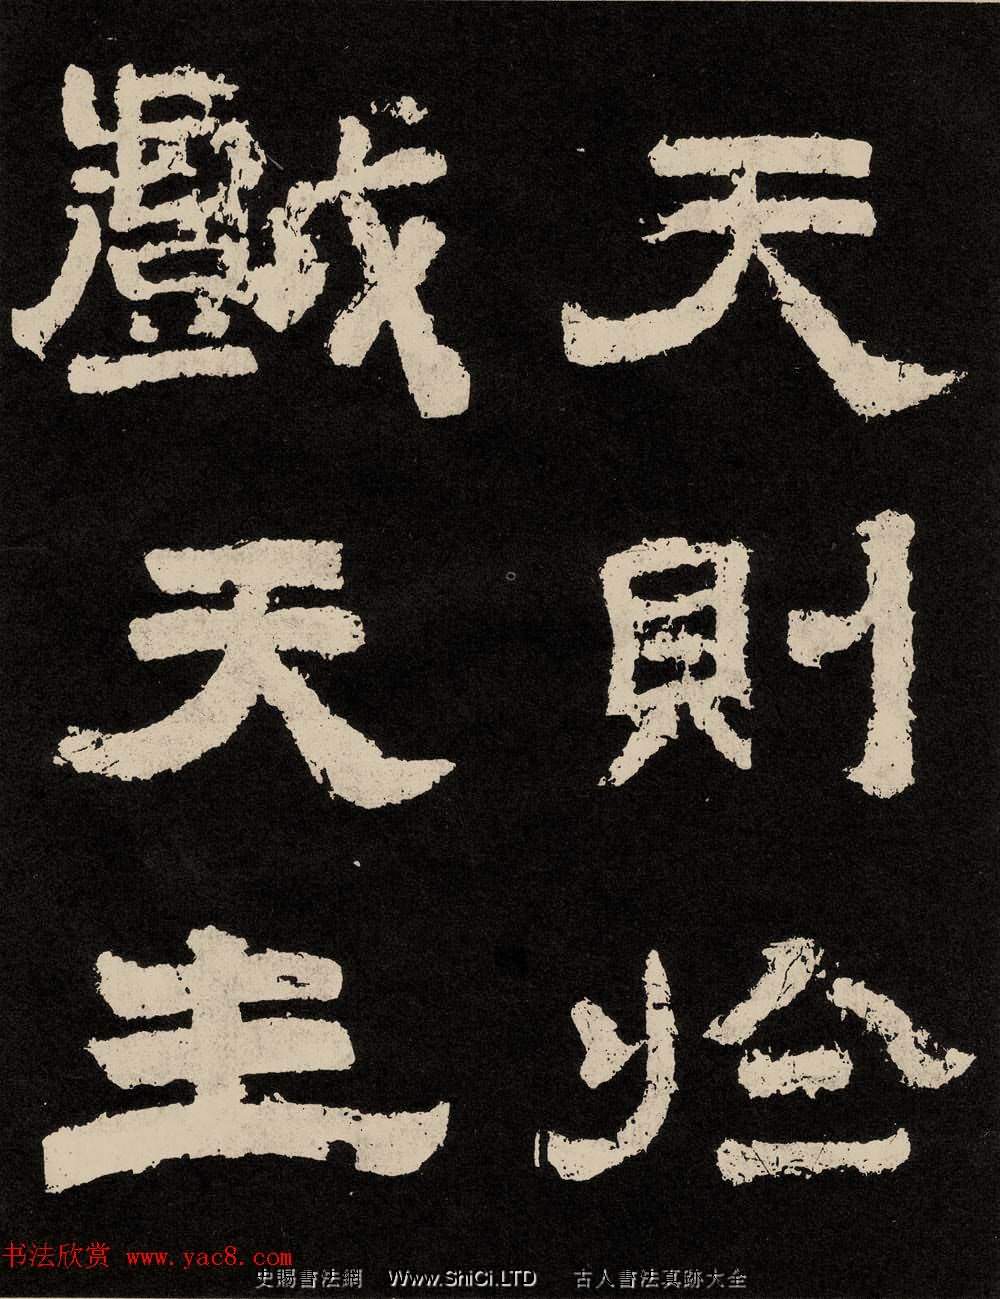 天則於
戲天生
书法欣赏 www.yac8.com
史賜書法網 Www.ShiCi.LTD 古人書法真跡大全